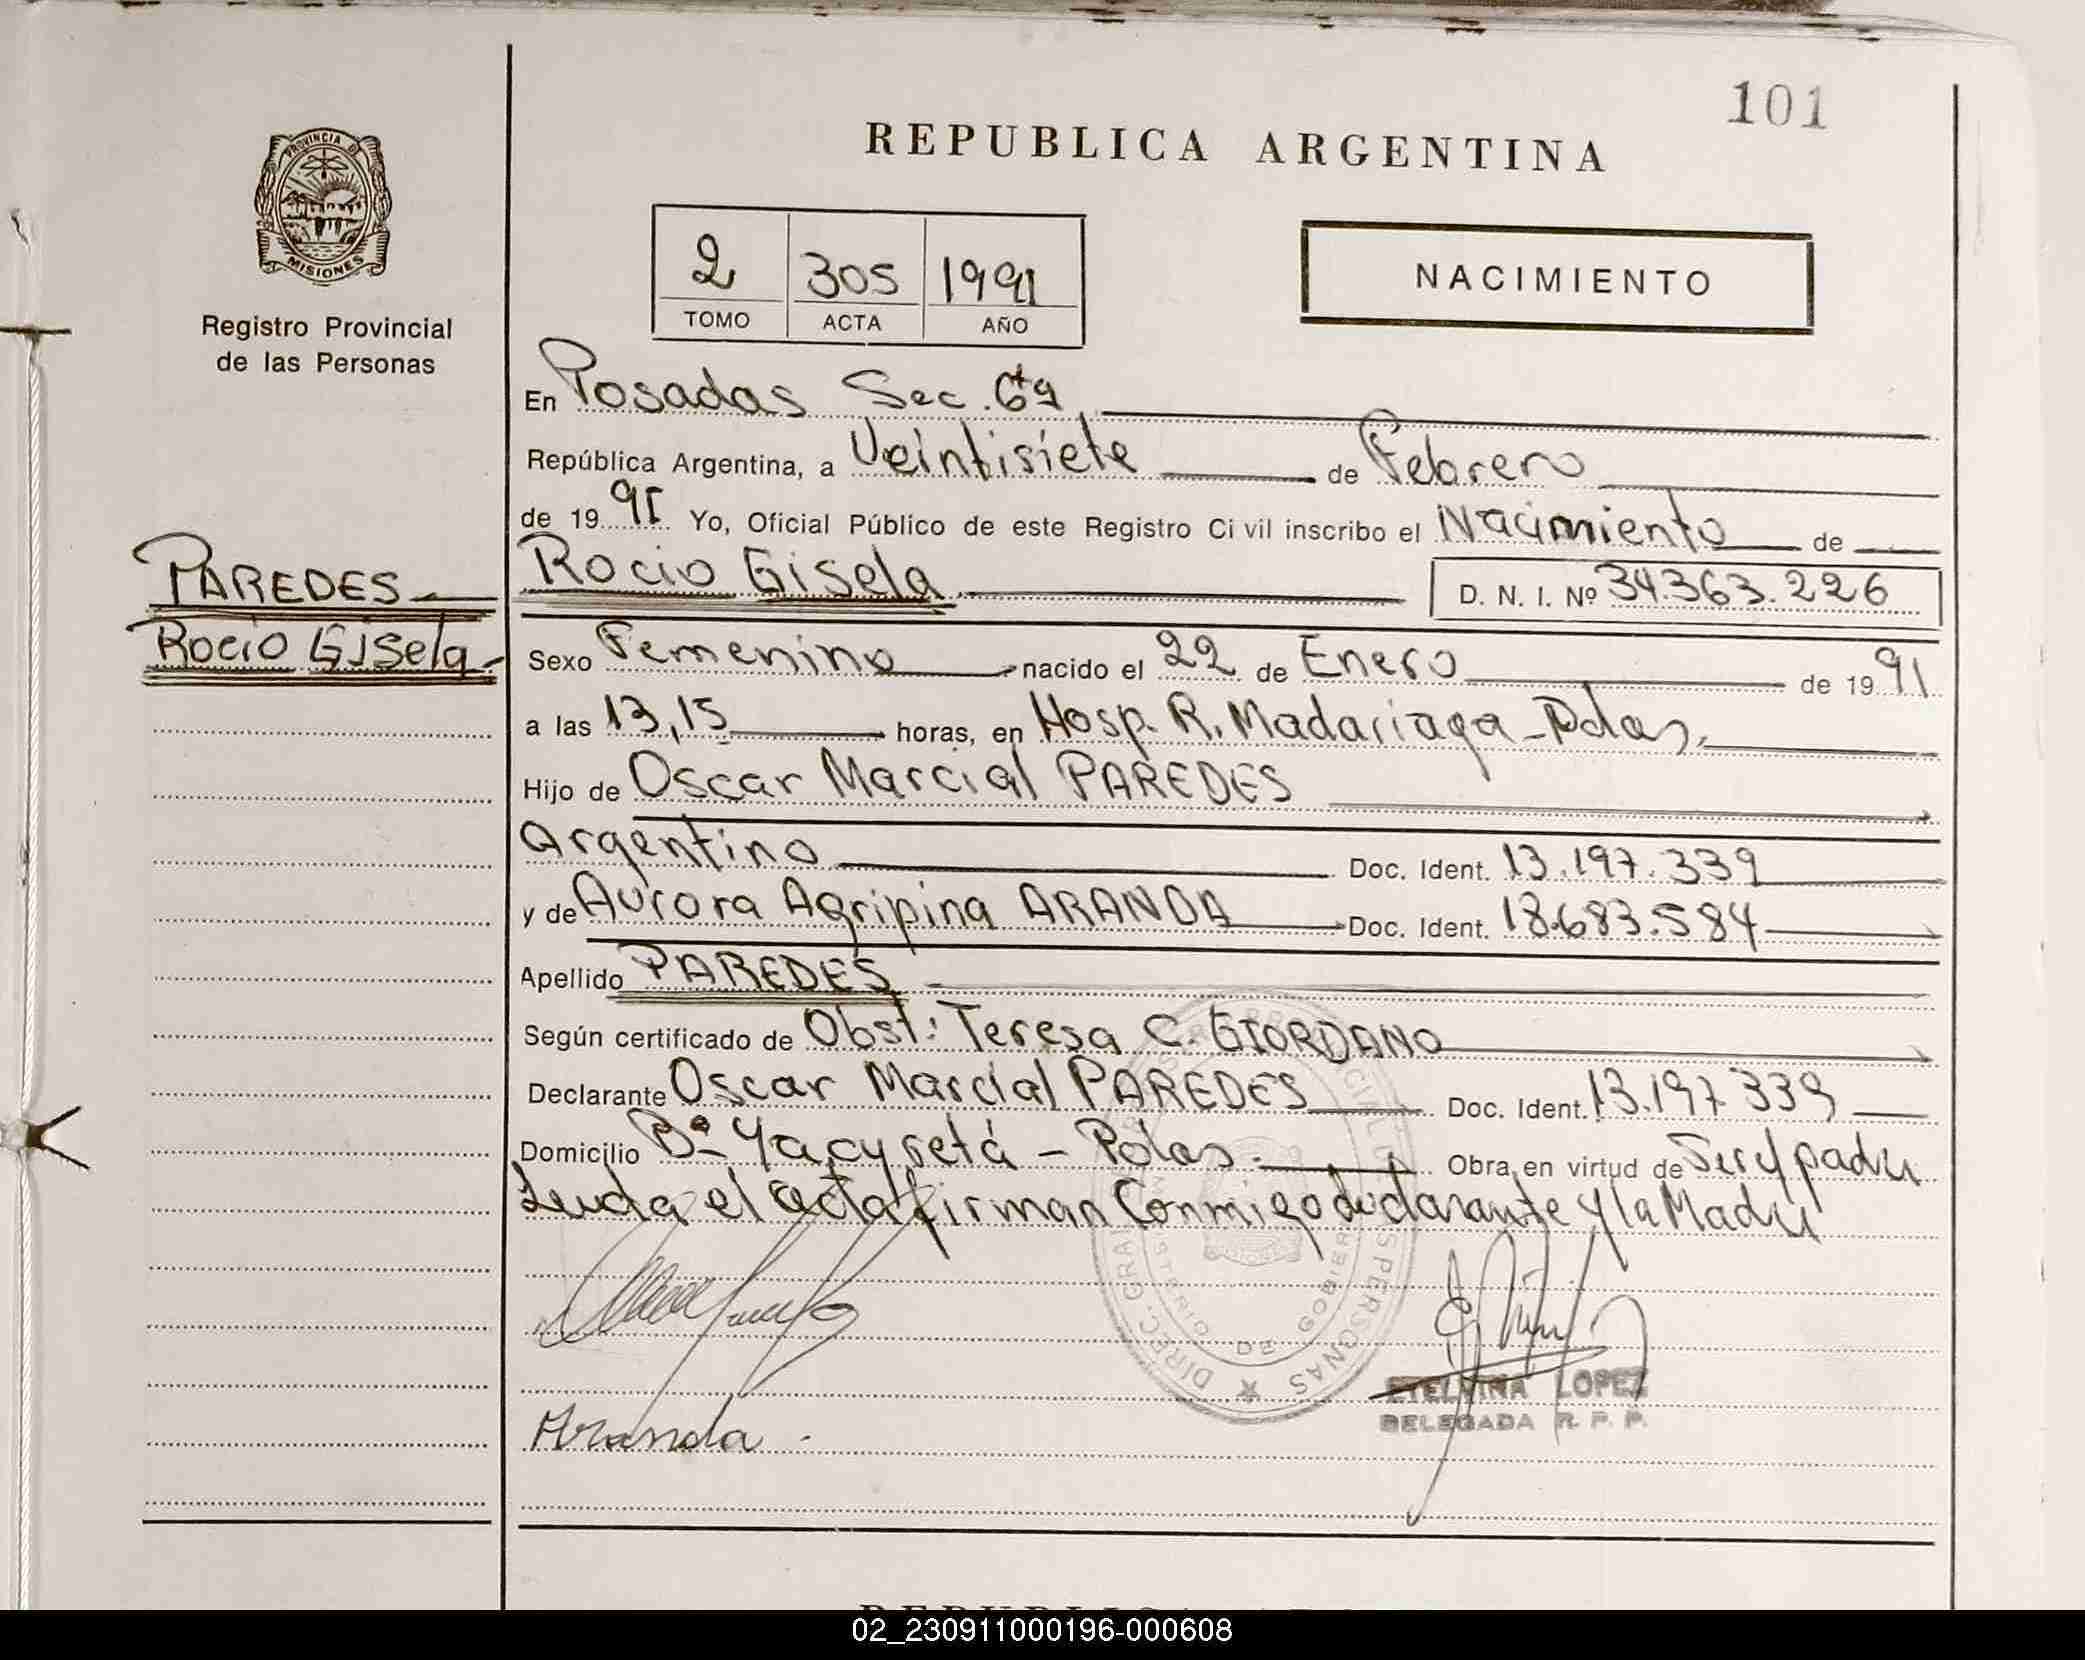 101
REPUBLICA ARGENTINA
PROVINCIA DE
MISIONES
Registro Provincial
de las Personas
2 305 1991
TOMO ACTA AÑO
NACIMIENTO
En Posadas Sec. 6ta
República Argentina, a Veintisiete de Febrero
de 19 91 Yo, Oficial Público de este Registro Civil inscribo el Nacimiento de
PAREDES
Rocio Gisela
Rocio Gisela D. N. I. Nº 34.363.226
Sexo Femenino nacido el 22 de Enero de 19 91
a las 13,15 horas, en Hosp. R. Madariaga - Pdas,
Hijo de Oscar Marcial PAREDES
Argentino Doc. Ident. 13.197.339
y de Aurora Agripina ARANDA Doc. Ident. 18.683.584
Apellido PAREDES
Según certificado de Obst: Teresa C. GIORDANO
Declarante Oscar Marcial PAREDES Doc. Ident. 13.197.339
Domicilio Bº Yacyretá - Pdas. Obra, en virtud de Ser el padre
Leida el acta firman Conmigo declarante y la Madre
Aranda
ETELVINA LOPEZ
DELEGADA R. P. P.
02_230911000196-000608